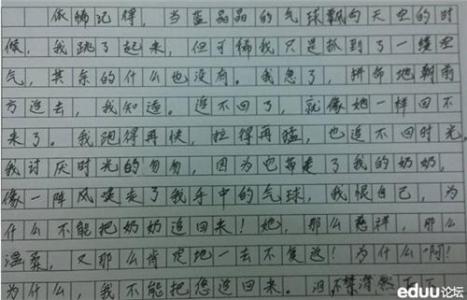 依稀记得，当蓝晶晶的气球飘向天空的时
候，我跳了起来，但可偏我只是抓到了一缕空
气，其余的什么也没有。我急了，拼命地朝前
方追去，我知道。追不回了，就像她一样回不
来了。我跑得再快，拉得再猛，也追不回时光。
我讨厌时光的匆匆，因为它带走了我的奶奶，
像一阵风嗖走了我手中的气球，我恨自己，为
什么不能把奶奶追回来！她，那么慈祥，那么
温柔，又那么肯定地一去不复返！为什么啊！
为什么，我不能把您追回来。泪不禁潸然
eduu论坛